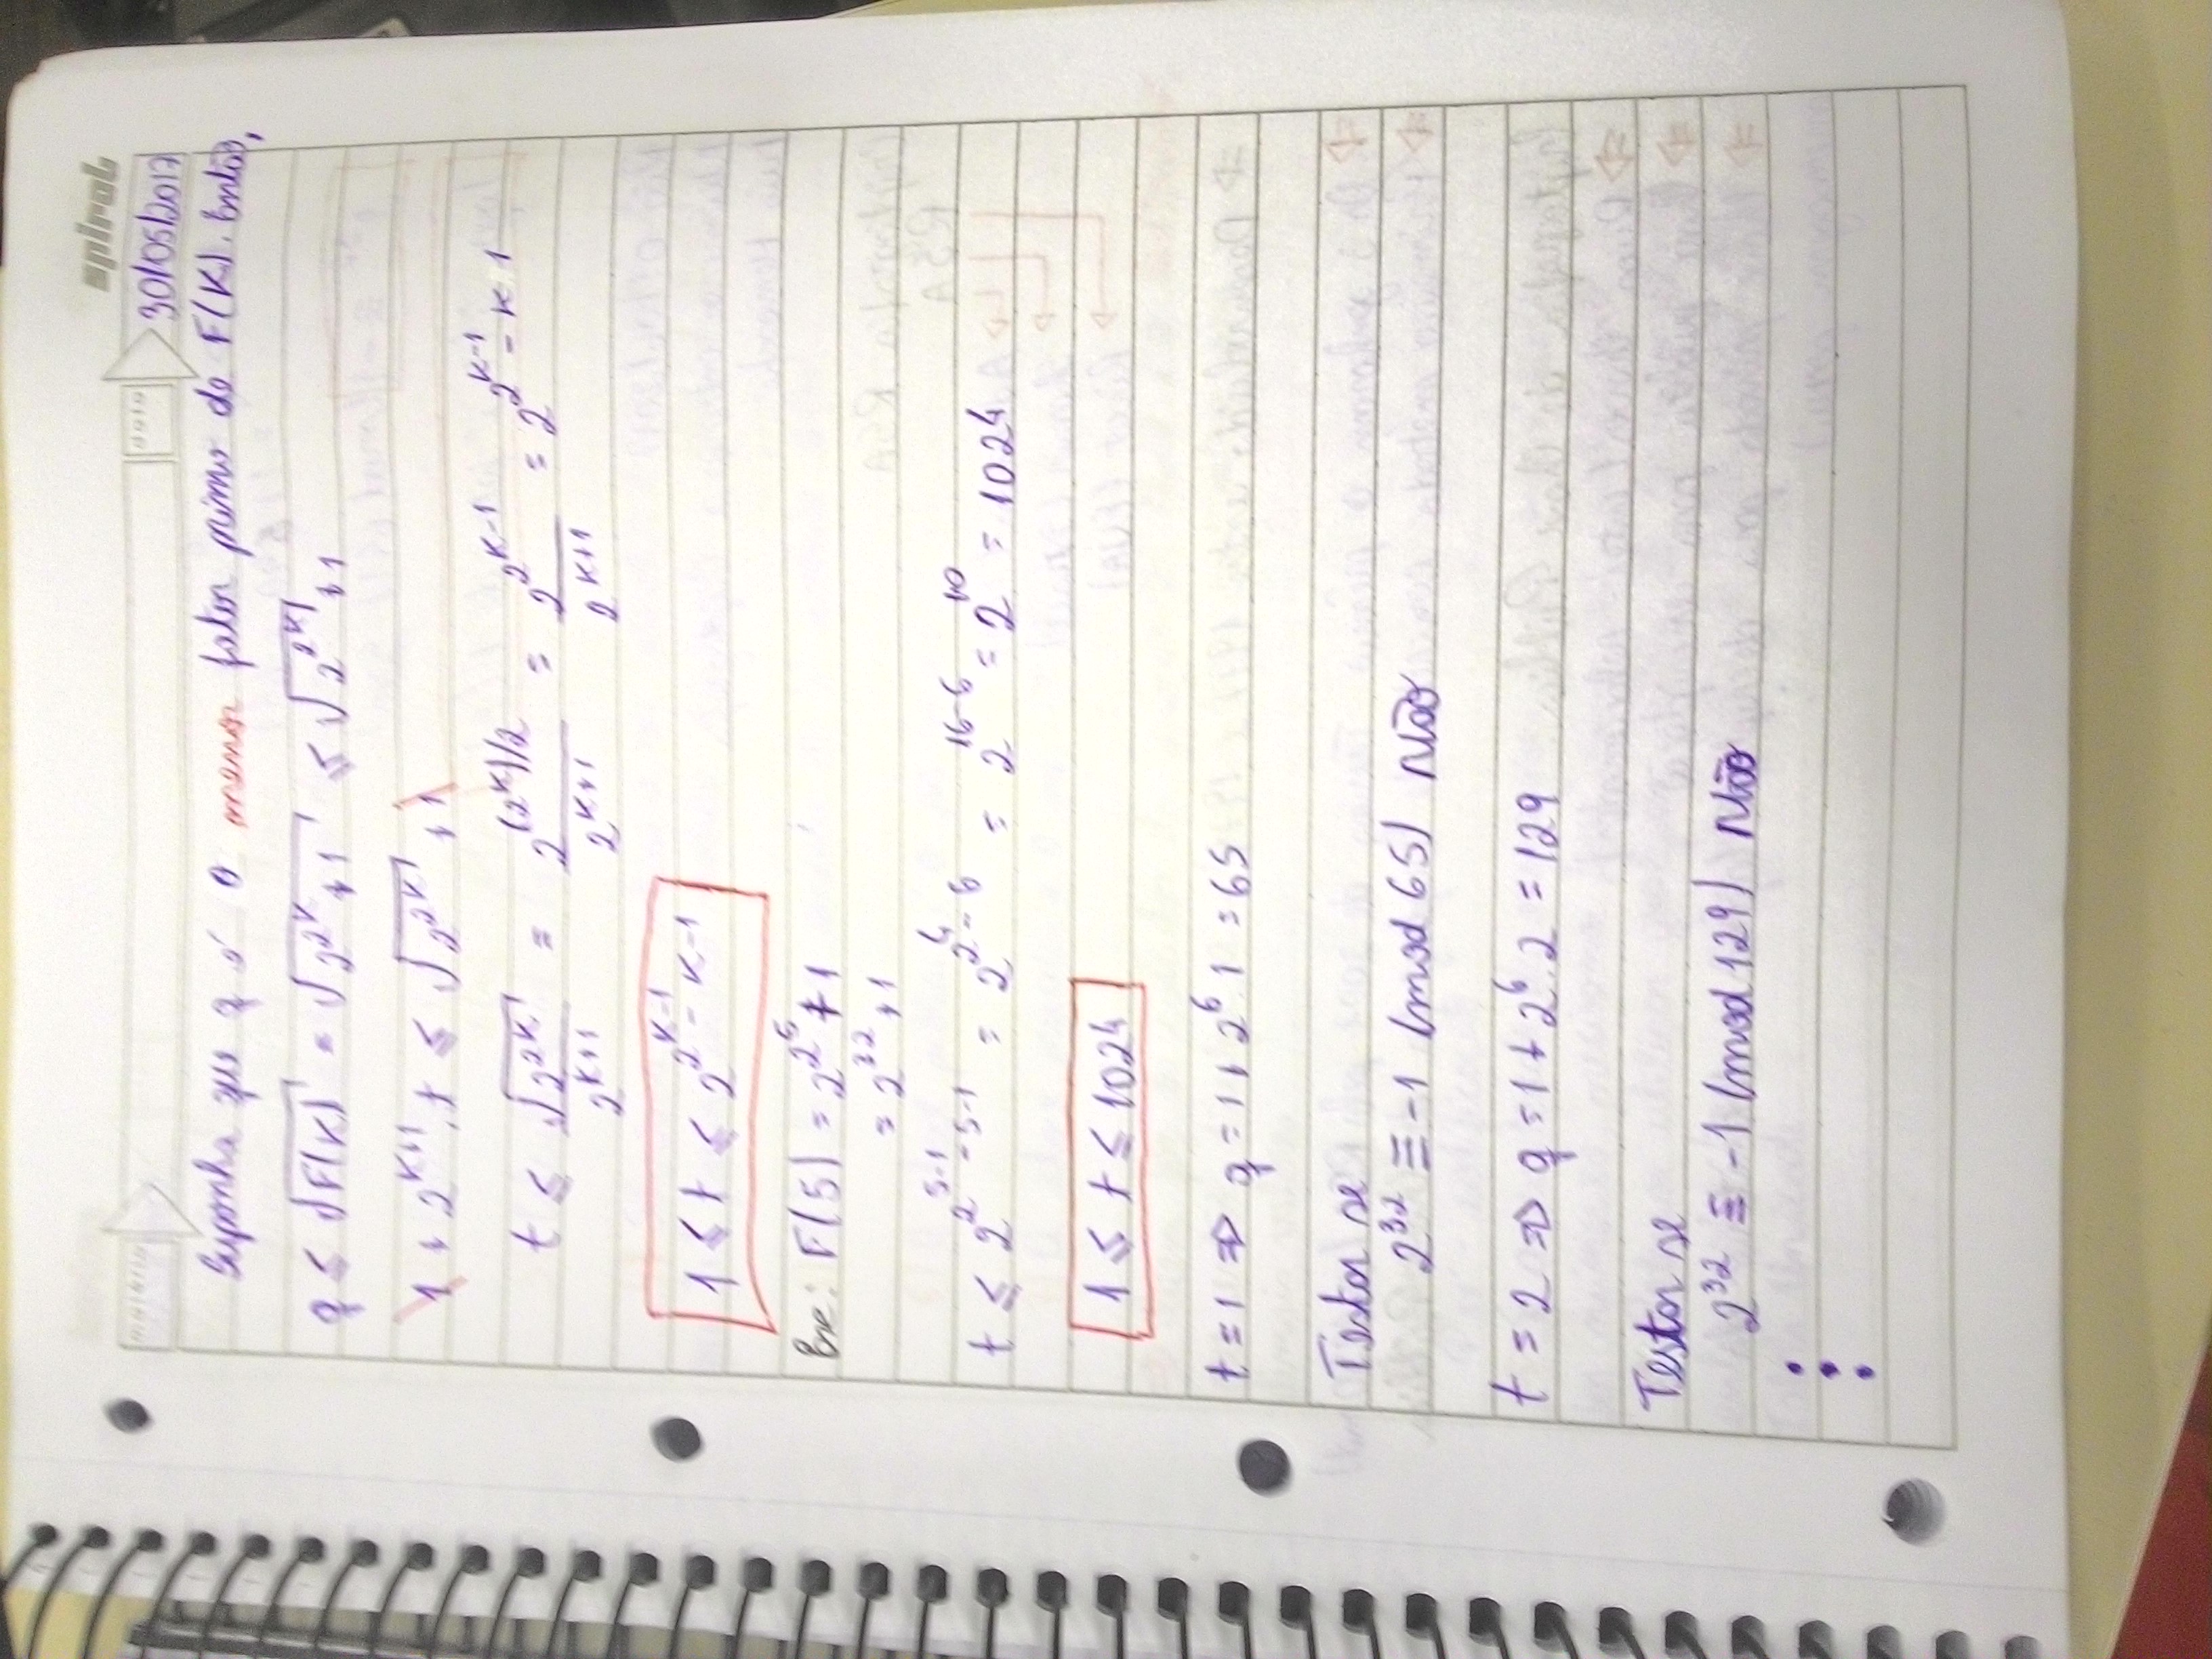 spiral
matéria data 30/05/2017
Suponha que q é o menor fator primo de F(K). Então,
q ≤ √F(K) = √(2^2^K + 1) ≤ √(2^2^K) + 1
1 + 2^(K+1) . t ≤ √(2^2^K) + 1
t ≤ √(2^2^K) / 2^(K+1) = 2^((2^K)/2) / 2^(K+1) = 2^(2^(K-1)) / 2^(K+1) = 2^(2^(K-1) - K 1)
1 ≤ t ≤ 2^(2^(K-1) - K-1)
Exe: F(5) = 2^2^5 + 1
= 2^32 + 1
t ≤ 2^(2^(5-1) - 5-1) = 2^(2^4 - 6) = 2^(16-6) = 2^10 = 1024
1 ≤ t ≤ 1024
t = 1 ⇒ q = 1 + 2^6 . 1 = 65
Testar se
2^32 ≡ -1 (mod 65) Não
t = 2 ⇒ q = 1 + 2^6 . 2 = 129
Testar se
2^32 ≡ -1 (mod 129) Não
⋮